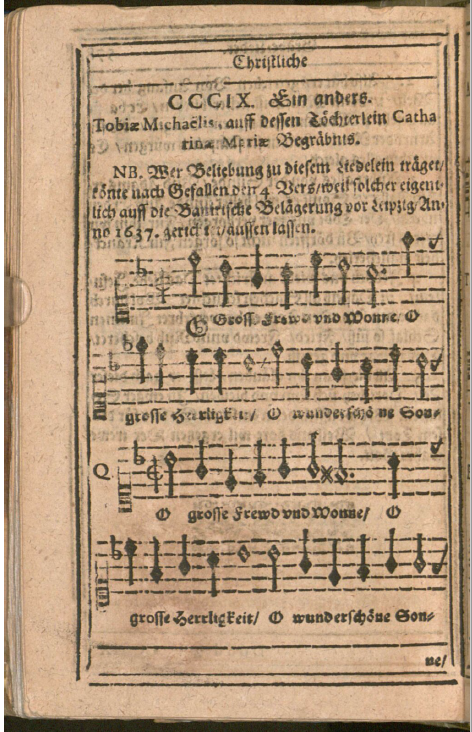 Christliche
CCCIX. Ein anders.
Tobiæ Michaëlis, auff dessen Töchterlein Catha
rinæ Mariæ Begräbnis.
NB. Wer Beliebung zu diesem Liedelein träget/
könte nach Gefallen den 4 Vers/weil solcher eigent-
lich auff die Banirische Belägerung vor Leipzig/An-
no 1637. gerichtet/aussen lassen.
O Grosse Frewd vnd Wonne/ O
grosse Herrligkeit/ O wunderschöne Son-
Q
O grosse Frewd vnd Wonne/ O
grosse Herrligkeit/ O wunderschöne Son-
ne/